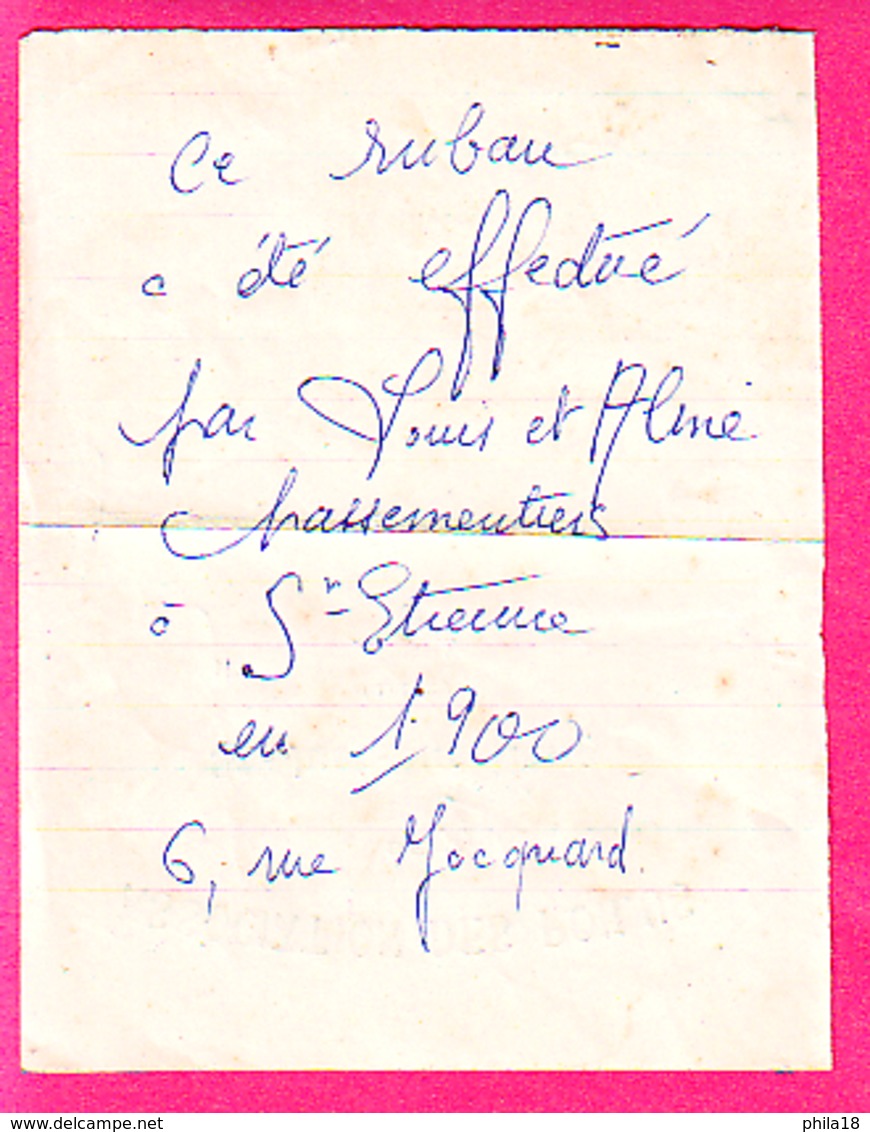 Ce ruban
a été effectué
par Louis et Aline
passementiers
à St Etienne
en 1900
6, rue Jacquard
delcampe.net
phila18